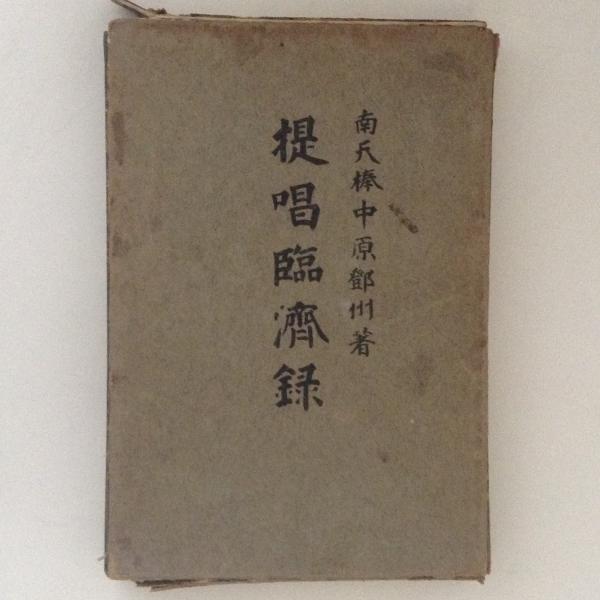 南天棒中原鄧州著
提唱臨濟録